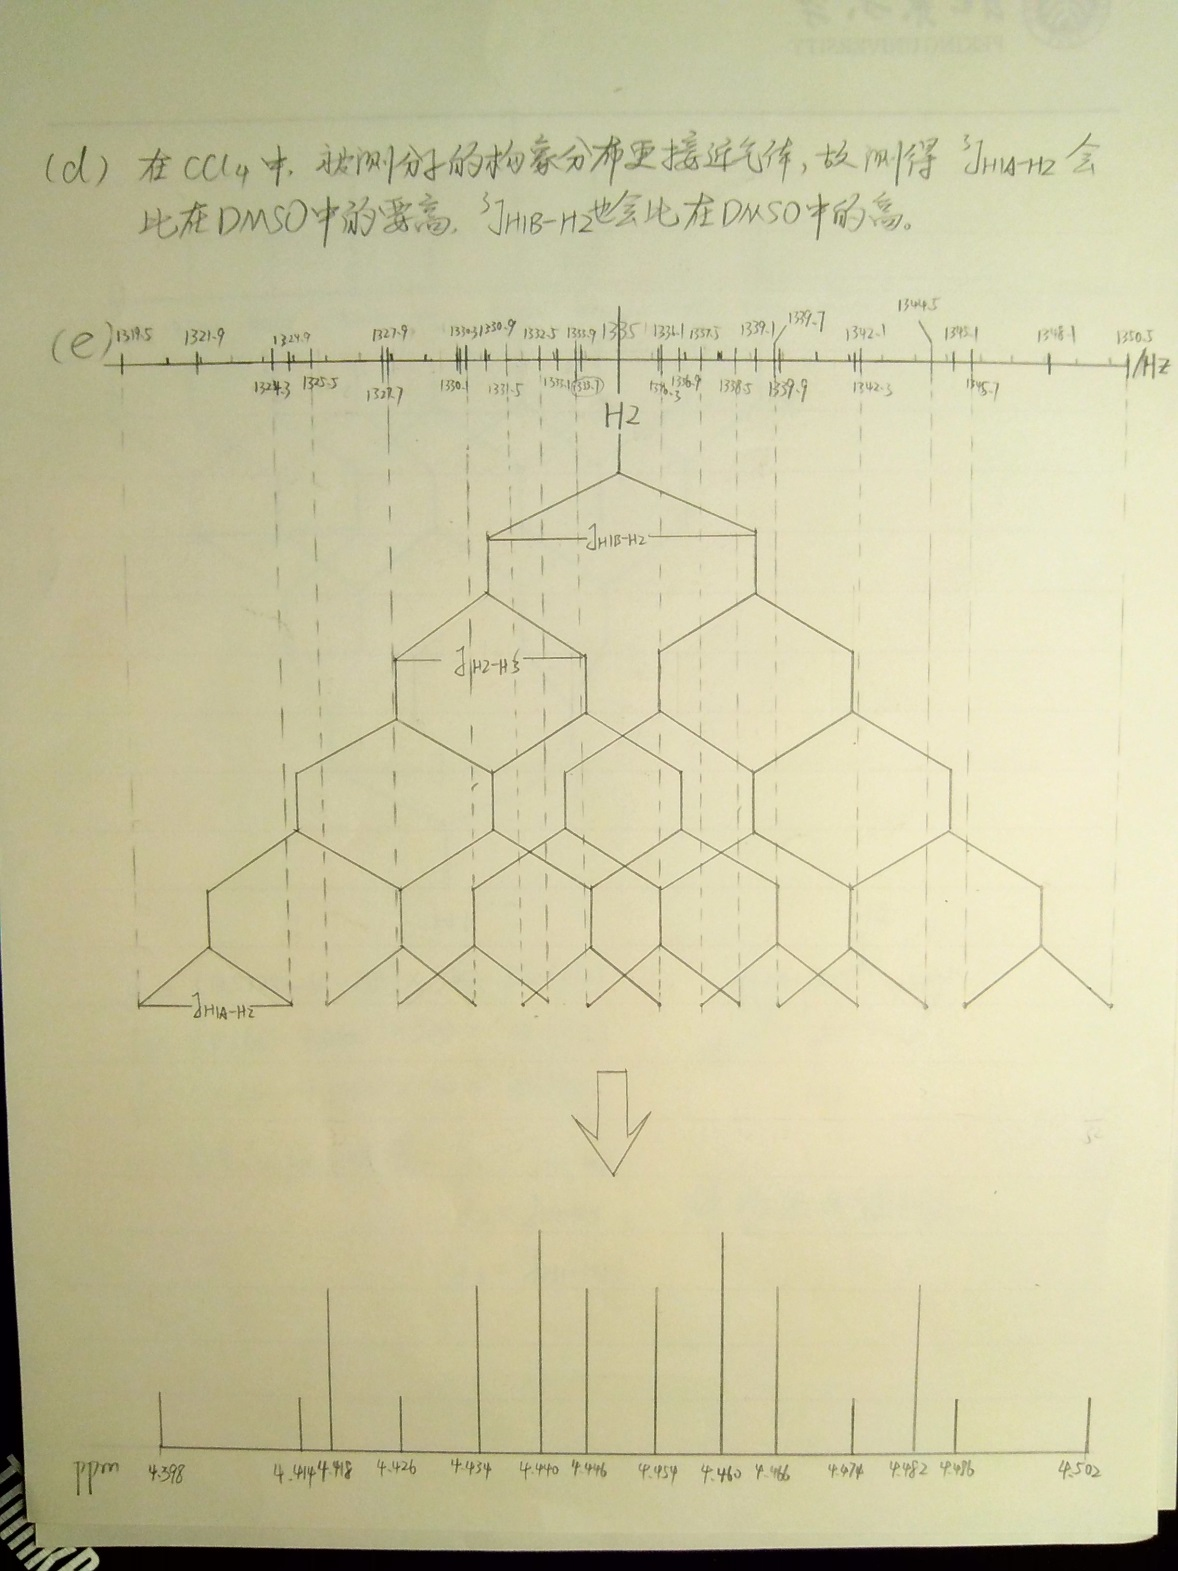 (d) 在CCl4中，被测分子的构象分布更接近气体，故测得 ³JH1A-H2 会
比在DMSO中的要高，³JH1B-H2也会比在DMSO中的高。
(e)
1344.5
1319.5 1321.9 1324.9 1327.9 1330.3 1330.9 1332.5 1333.9 1335 1336.1 1337.5 1339.1 1339.7 1342.1 1345.1 1348.1 1350.5 /Hz
1324.3 1325.5 1327.7 1330.1 1331.5 1333.1 1333.7 1336.3 1336.9 1338.5 1339.9 1342.3 1345.7
H2
JH1B-H2
JH2-H3
JH1A-H2
ppm 4.398 4.414 4.418 4.426 4.434 4.440 4.446 4.454 4.460 4.466 4.474 4.482 4.486 4.502